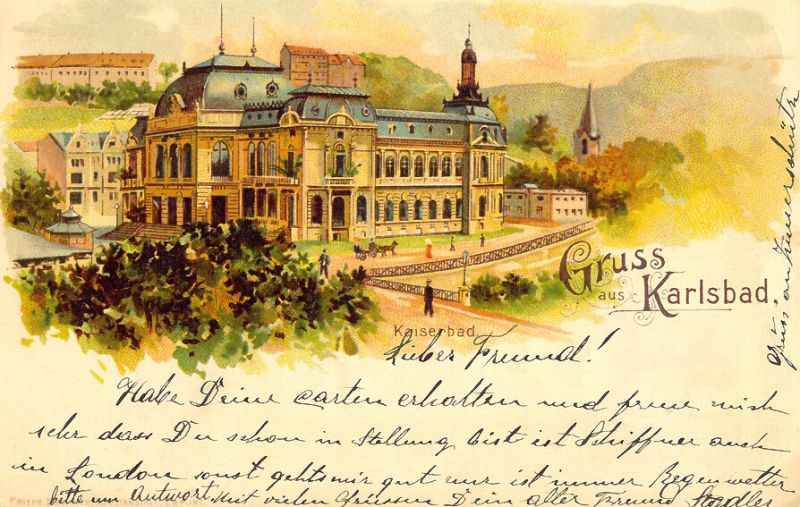 Gruss
aus
Karlsbad.
Kaiserbad
Lieber Freund!
Habe Deine Carten erhalten und freue mich
sehr dass Du schon in Stellung bist ist Schiffner auch
in London sonst gehts mir gut nur ist immer Regenwetter
bitte um Antwort. Mit vielen Grüssen Dein alter Freund
Gruss an
FRIEDR